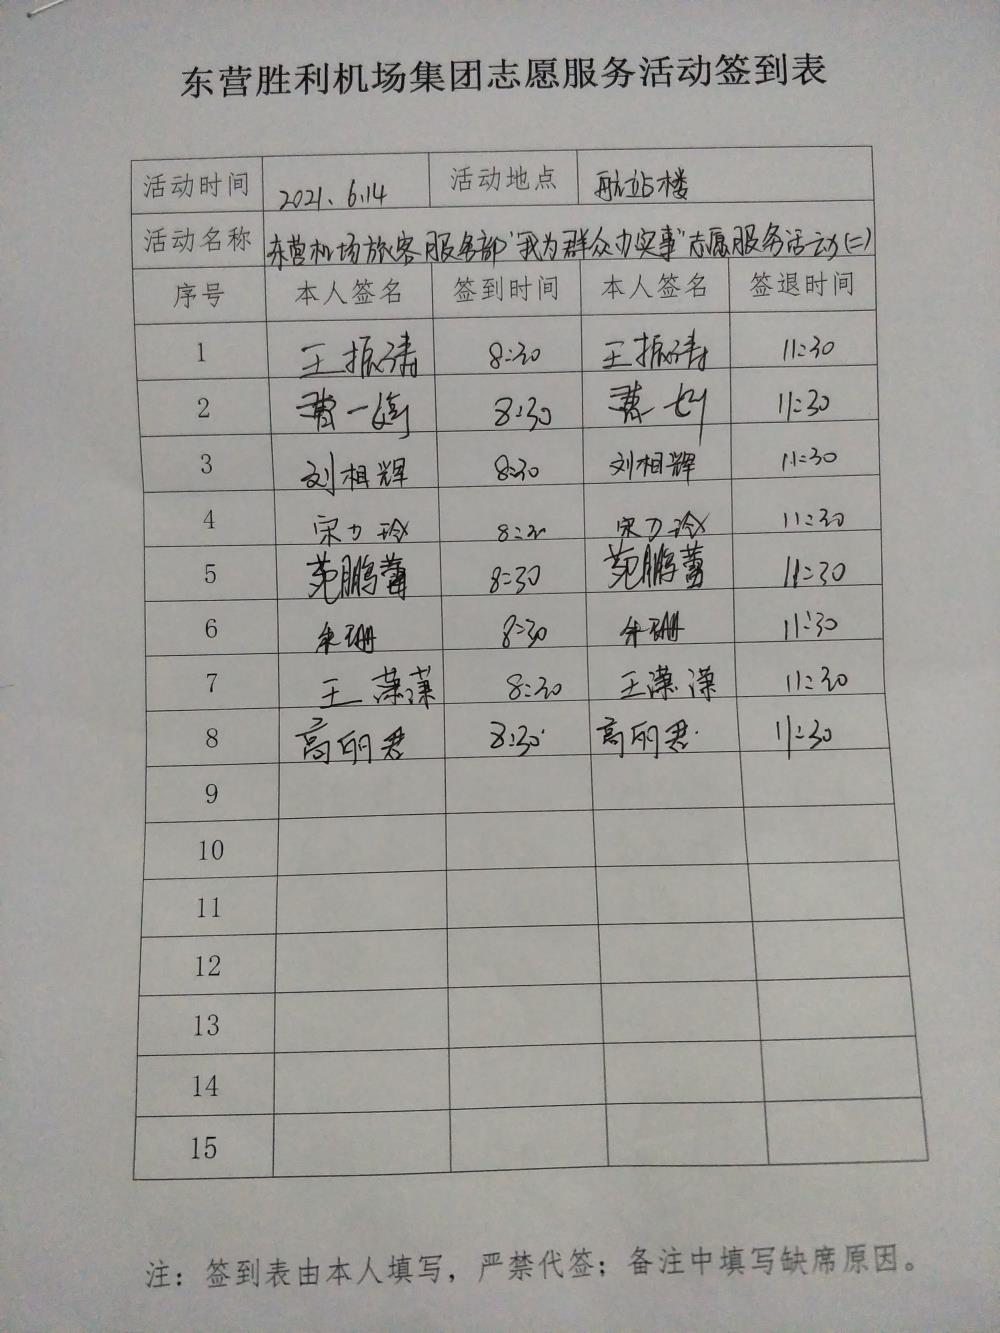 东营胜利机场集团志愿服务活动签到表
活动时间 2021.6.14 活动地点 航站楼
活动名称 东营机场旅客服务部"我为群众办实事"志愿服务活动(二)
序号 本人签名 签到时间 本人签名 签退时间
1 王振涛 8:30 王振涛 11:30
2 曹一 8:30 曹一 11:30
3 刘相辉 8:30 刘相辉 11:30
4 宋力玲 8:30 宋力玲 11:30
5 范鹏蕾 8:30 范鹏蕾 11:30
6 朱珊 8:30 朱珊 11:30
7 王潇潇 8:30 王潇潇 11:30
8 高丽君 8:30 高丽君 11:30
9
10
11
12
13
14
15
注：签到表由本人填写，严禁代签；备注中填写缺席原因。